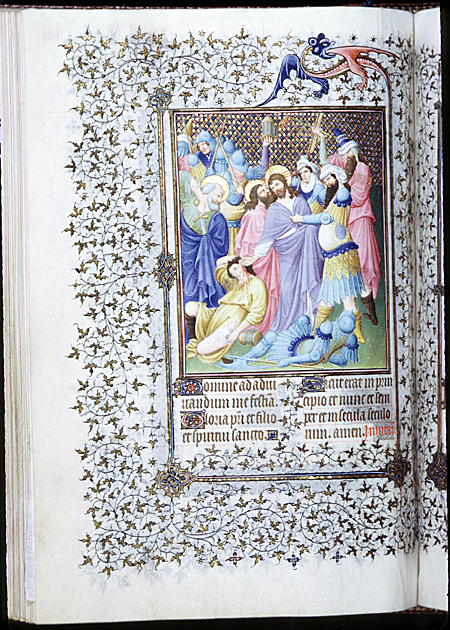 Domine ad adiu
uandum me festina.
Gloria pr̄i et filio
et spiritui sancto.
Sicut erat in prin
cipio et nunc et sem
per et in secula seculo
rum. amen.